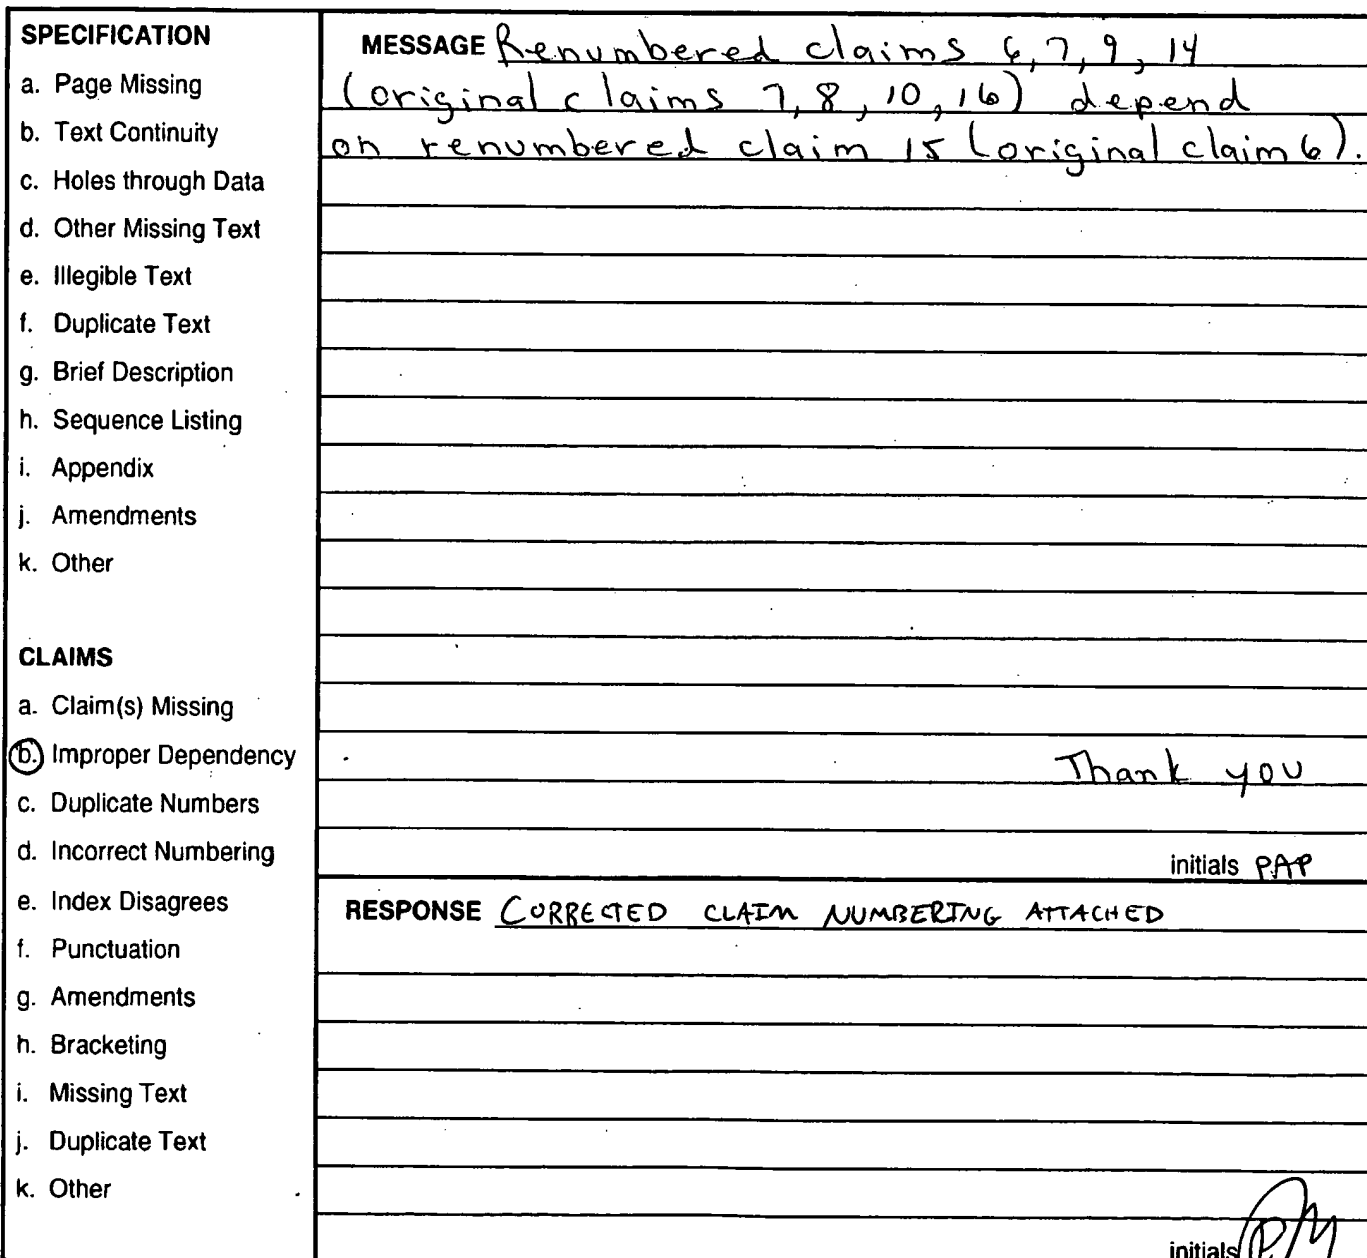 SPECIFICATION
a. Page Missing
b. Text Continuity
c. Holes through Data
d. Other Missing Text
e. Illegible Text
f. Duplicate Text
g. Brief Description
h. Sequence Listing
i. Appendix
j. Amendments
k. Other
CLAIMS
a. Claim(s) Missing
b. Improper Dependency
c. Duplicate Numbers
d. Incorrect Numbering
e. Index Disagrees
f. Punctuation
g. Amendments
h. Bracketing
i. Missing Text
j. Duplicate Text
k. Other
MESSAGE Renumbered claims 6, 7, 9, 14
(original claims 7, 8, 10, 16) depend
on renumbered claim 15 (original claim 6).
Thank you
initials PAP
RESPONSE CORRECTED CLAIM NUMBERING ATTACHED
initials